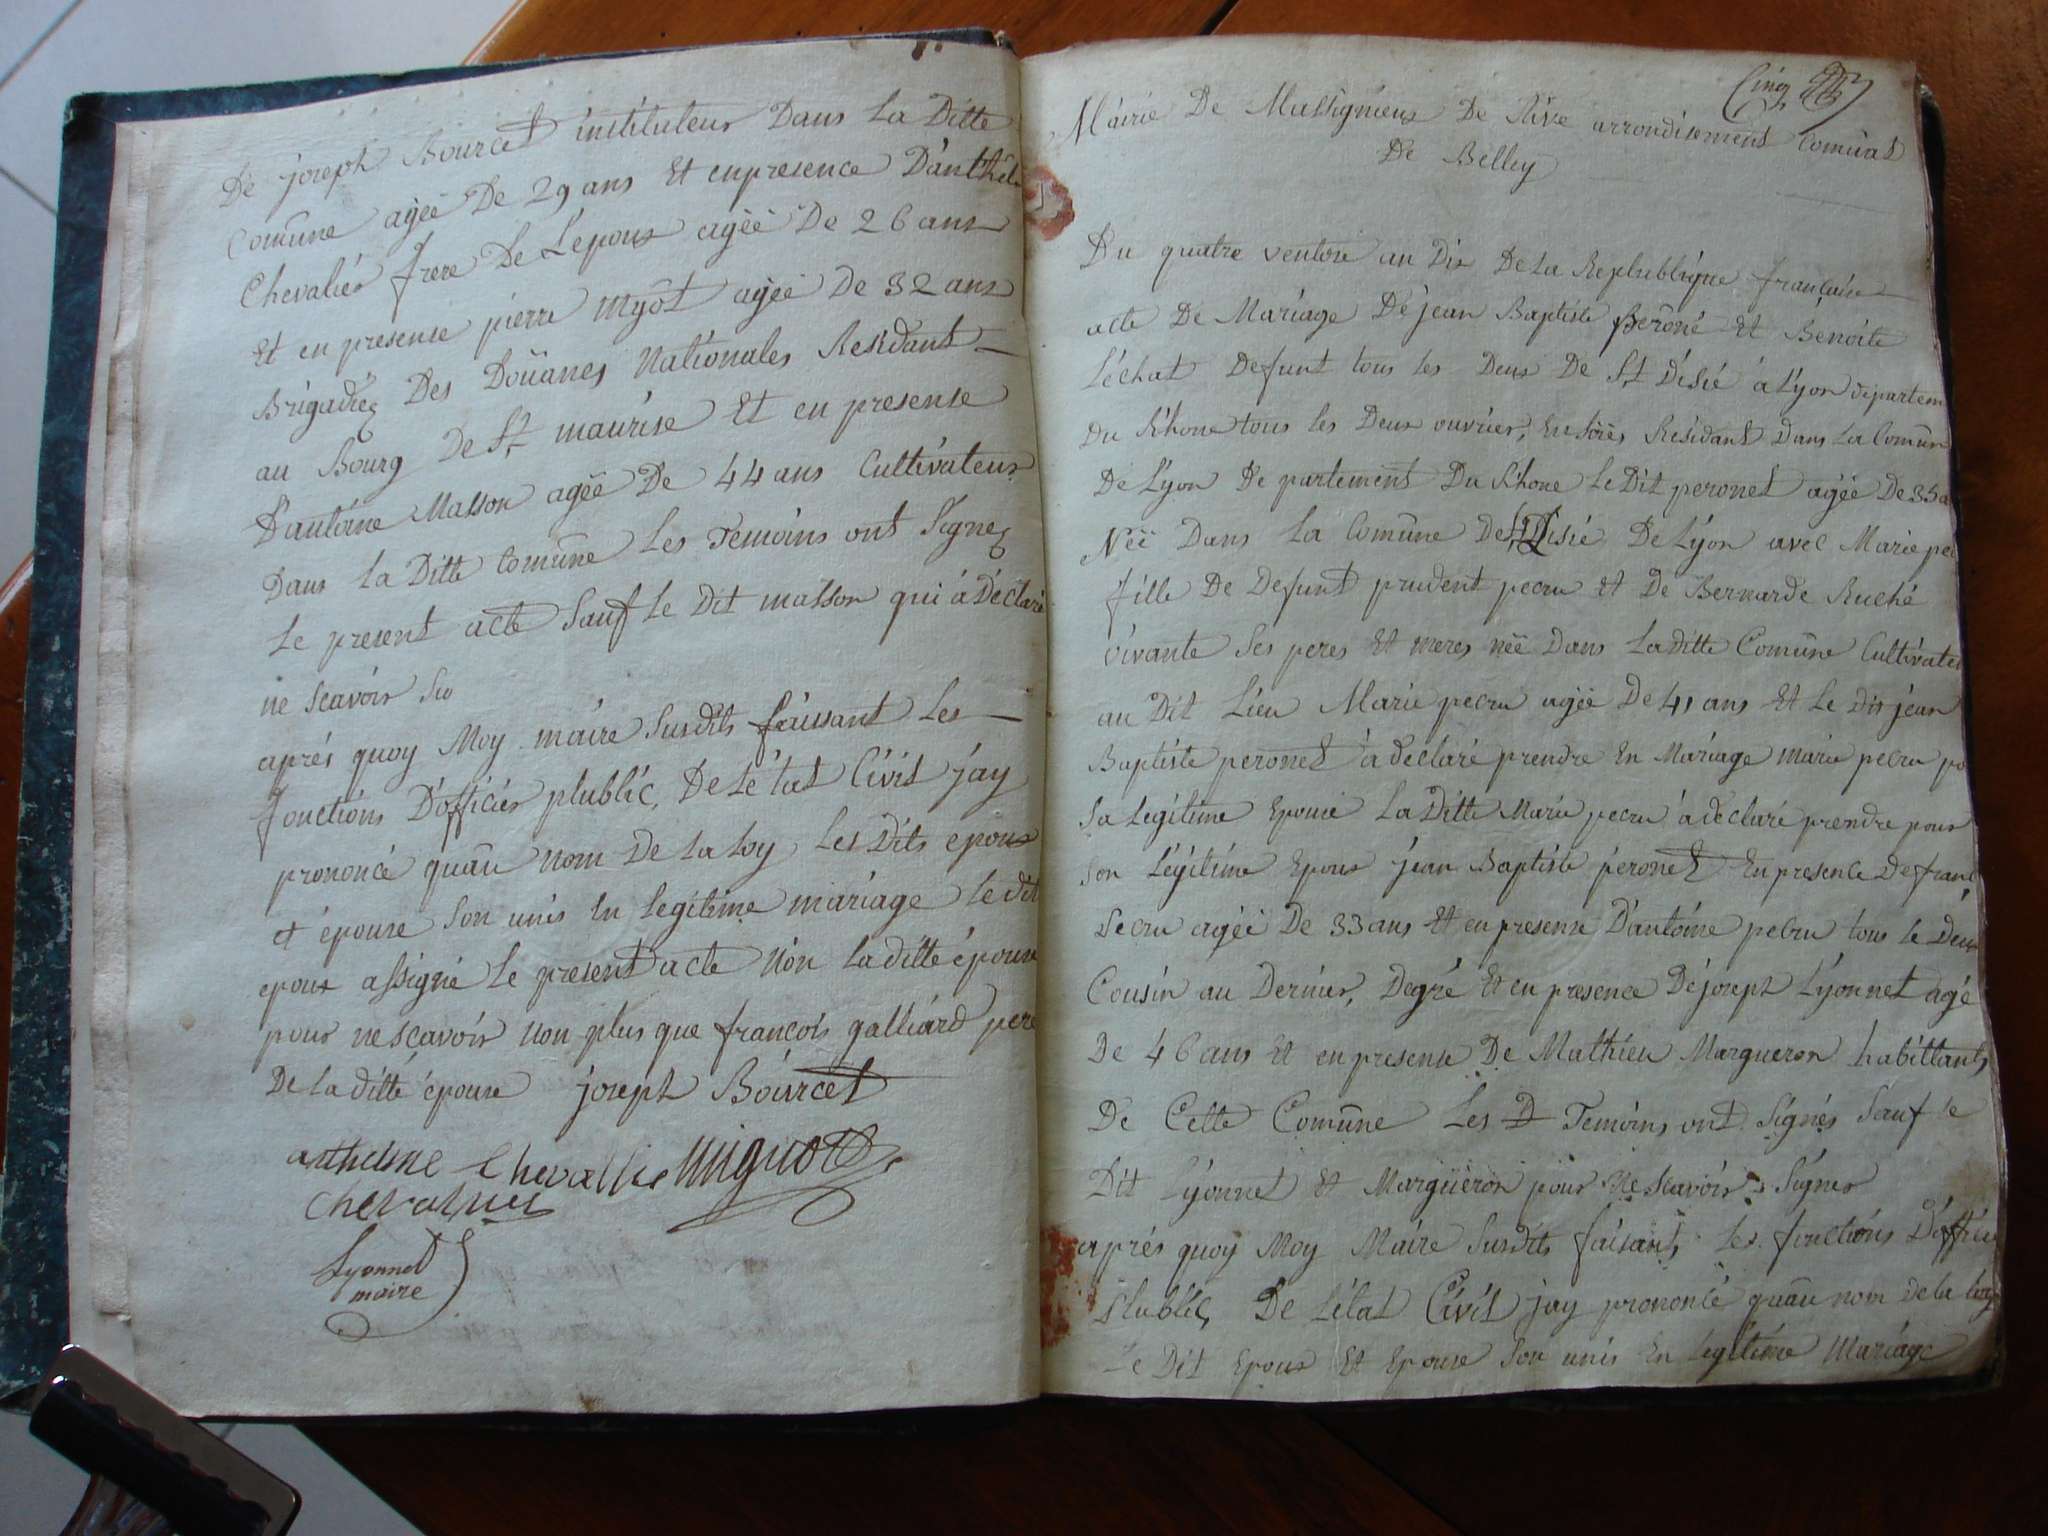 De joseph Bourcet instituteur Dans La Ditte
Comune agéé De 29 ans Et enpresence D'anthel
Chevaliér frere De L'epoux agéé De 26 ans
Et en presense pierre Myot agéé De 32 ans
Brigadiez Des Doüanes Nationales Residant
au Bourg De St maurise Et en presense
D'antoine Masson agéé De 44 ans Cultivateur
Dans La Ditte Comune Les Temoins ont Signez
Le present acte Sauf Le Dit masson qui á Déclaré
ne scavoir
aprés quoy Moy maire Susdits faissant Les
fonctions D'officiér plublic, De Lé'tat Civil jay
prononcé quau nom De La Loy Les Dits epoux
et épouse Son unis En Legitime mariage Le dit
epoux assigné Le present acte Nón La ditte épouse
pour nescavoir non plus que francois galliard pere
De La ditte épouse joseph Bourcet
anthelme Chevallie Mignot
chevalier
Lyonnet
maire
Cinq
Mairie De Massignieux De Rive arrondisement Comunal
De Belley
Du quatre ventose an Dix De La Replublique française
acte De Mariage De jean Baptiste peroné Et Benoite
Léchat Defunt tous les Deux De St Disié à Lyon départem
Du Rhone tous les Deux ouvrier, En Soies Residant Dans La Comune
De Lyon De partement Du Rhone Le Dit peronet agéé De 35 a
Néé Dans La Comune De St Disié De Lyon avec Marie pec
fille De Defunt prudent pecru Et De Bernarde Ruché
vivante Ses peres Et meres néé Dans La ditte Comune Cultivate
au Dit Lieu Marie pecru agéé De 41 ans Et Le Dit jean
Baptiste peronet à declaré prendre En Mariage marie pecru po
Sa Legitime Epouse La Ditte Marie pecru à declaré prendre pour
Son Légitime Epoux jean Baptiste péronet En presence De franç
Pecru agéé De 33 ans Et en presense D'antoine pecru tous Le Deux
Cousin au Dernier, Degré Et en presence De joseph Lyonnet agé
De 46 ans Et en presense De Mathieu Margueron habittants
De Cette Comune Les D Temoins ont Signés Sauf Le
Dit Lyonnet Et Margueron pour Ne Scavoir Signer
aprés quoy Moy Maire Susdits faisants Les fonctions D'officié
Plublic, De Létat Civil jay prononcé quau nom de la Loy
Le Dit Epoux Et Epouse Son unis En Legitime Mariage